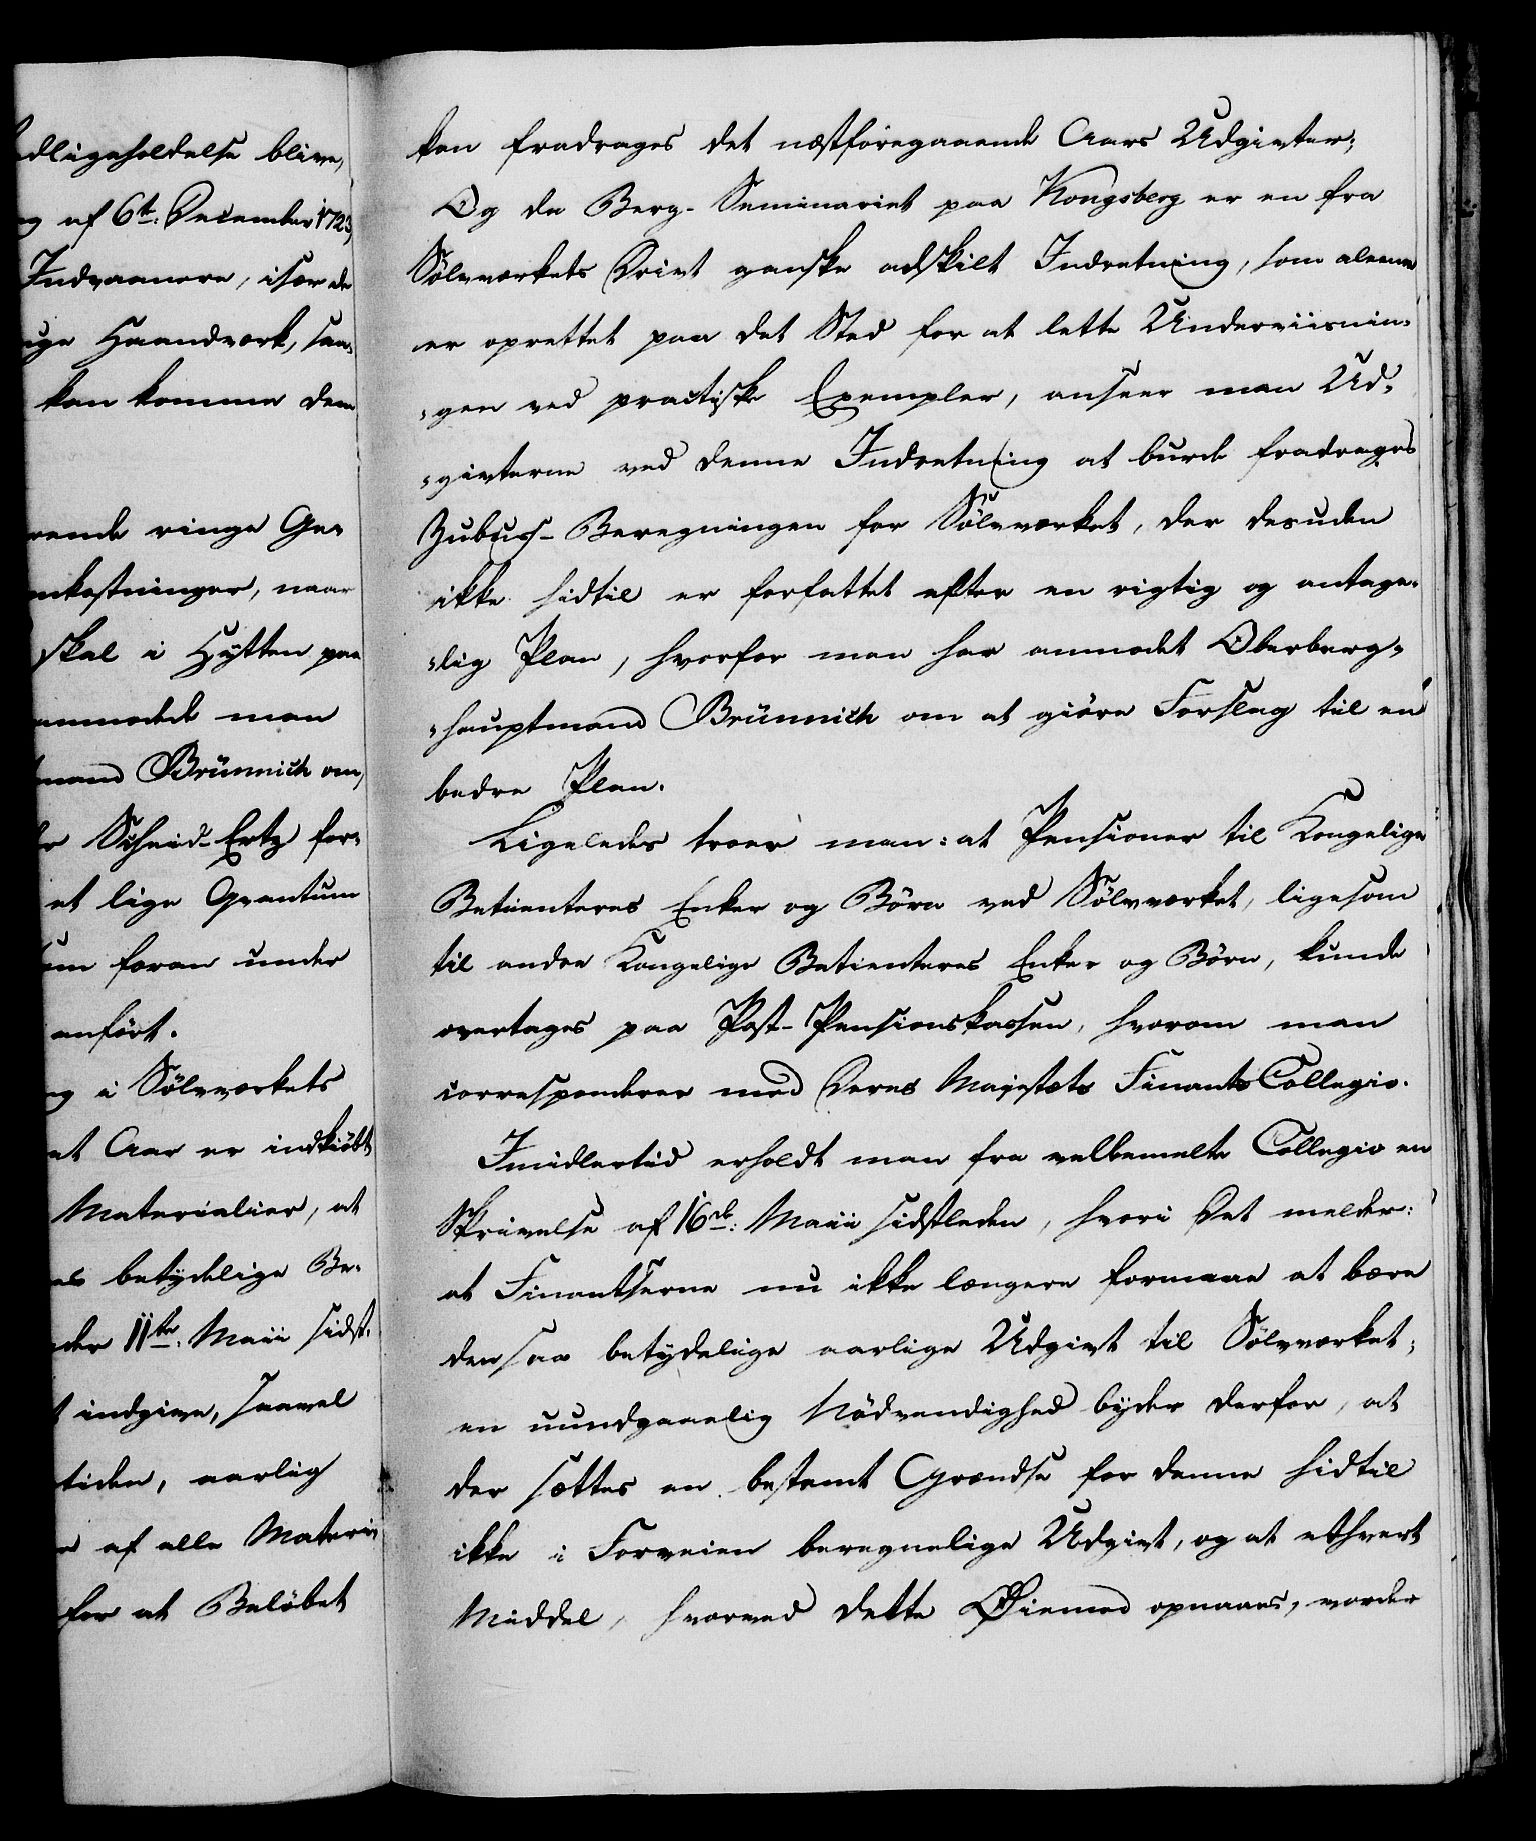 dligeholdelse blive,
af 6te: December 1723
Indvaanere, især de
Haandværk, saa-
kan komme dem
ringe Ge-
naar
skal i Hytten paa
anmodede man
mand Brünnich om,
Scheid-Ertz for-
et lige Qvantum
foran under
anført.
i Sölvværkets
Aar er indkiöbt
Materialier, at
betydelige Be-
11te: Maii sidst-
indgive, saavel
tiden, aarlig
af alle Materi-
for at Belöbet
kan fradrages det næstforegaaende Aars Udgivter;
Og da Berg-Seminariet paa Kongsberg er en fra
Sölvværkets Drivt ganske adskilt Indretning, som aleene
er oprettet paa det Sted for at lette Underviisnin-
-gen ved practiske Exempler, anseer man Ud-
-givterne ved denne Indretning at burde fradrages
Zubuss-Beregningen for Sölvværket, der desuden
ikke hidtil er forfattet efter en rigtig og antage-
-lig Plan, hvorfor man har anmodet Oberberg-
-hauptmand Brünnich om at giöre Forslag til en
bedre Plan.
Ligeledes troer man: at Pensioner til Kongelige
Betienteres Enker og Börn ved Sölvværket, ligesom
til andre Kongelige Betienteres Enker og Börn, kunde
overtages paa Post-Pensionskassen, hvorom man
corresponderer med Deres Majestæts FinantsCollegio.
Imidlertid erholdt man fra velbemelte Collegio en
Skrivelse af 16de: Maii sidstleden, hvori Det melder:
at Finantserne nu ikke længere formaae at bære
den saa betydelige aarlige Udgivt til Sölvværket;
en uundgaaelig Nödvendighed byder derfor, at
der sættes en bestemt Grændse for denne hidtil
ikke i Forveien beregnelige Udgivt, og at ethvert
Middel, hvorved dette Øiemed opnaaes, vorder